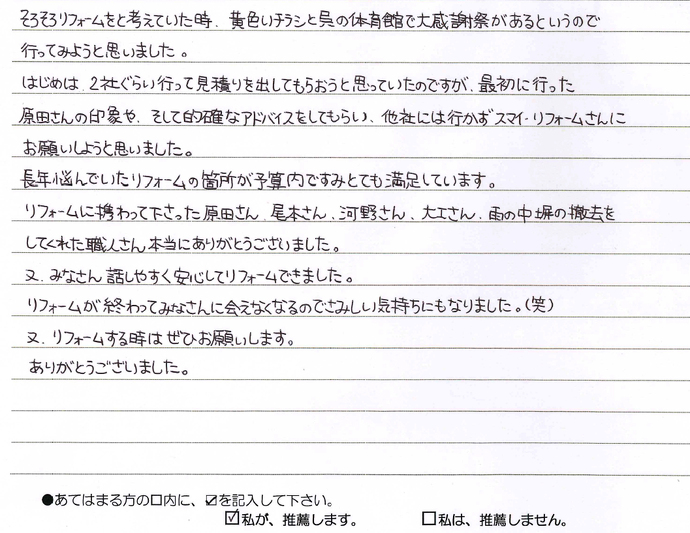 そろそろリフォームをと考えていた時、黄色いチラシと呉の体育館で大感謝祭があるというので
行ってみようと思いました。
はじめは、2社ぐらい行って見積りを出してもらおうと思っていたのですが、最初に行った
原田さんの印象や、そして的確なアドバイスをしてもらい、他社には行かずスマイ・リフォームさんに
お願いしようと思いました。
長年悩んでいたリフォームの箇所が予算内ですみとても満足しています。
リフォームに携わって下さった原田さん、尾本さん、河野さん、大工さん、雨の中塀の撤去を
してくれた職人さん本当にありがとうございました。
又、みなさん話しやすく安心してリフォームできました。
リフォームが終わってみなさんに会えなくなるのでさみしい気持ちにもなりました。(笑)
又、リフォームする時はぜひお願いします。
ありがとうございました。
●あてはまる方の口内に、☑を記入して下さい。
☑私が、推薦します。 □私は、推薦しません。